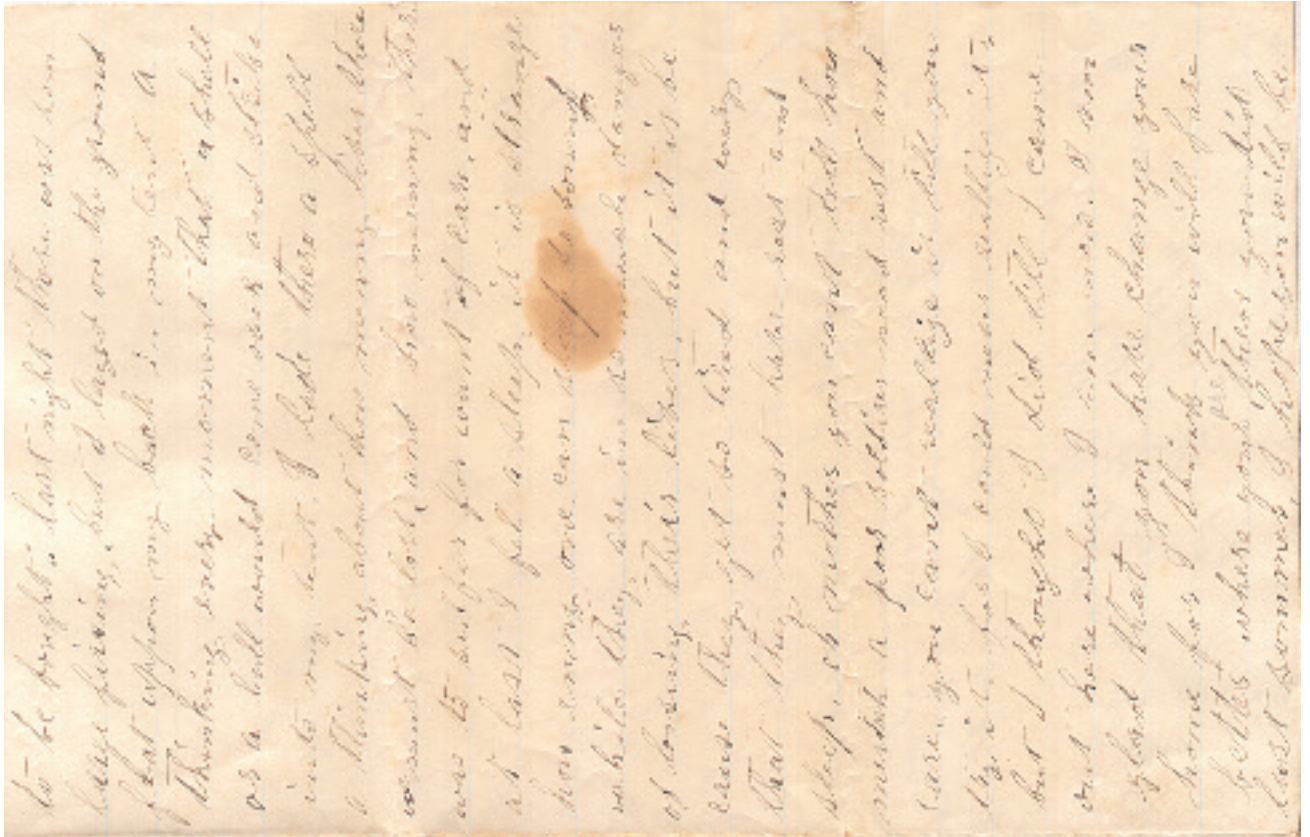 to be fought, last night there was hom
huge firing, but I layed on the ground
flat upon my back in my tent a
thinking every moment that a shell
or a ball would come over and strike
into my tent. I lade there a spell
a thinking about how meny lives there
would be lost, and how meny thar
was to suffer for want of care, and
at last I fel a sleep it is strange
how eny one can sleep so sound
while they are in danger
of loosing their lives, but it is be
cause they get so tired and weary
that they must have rest and
sleep, oh mother you cant tell how
much a poor soldier must and
care, you cant realize it till you
try it, Lost could never realize it,
but I thought I did till I come
out here where I now am. I am
glad that you have change your
home for I think you will fare
better where you are than you did
last some I hope you will be